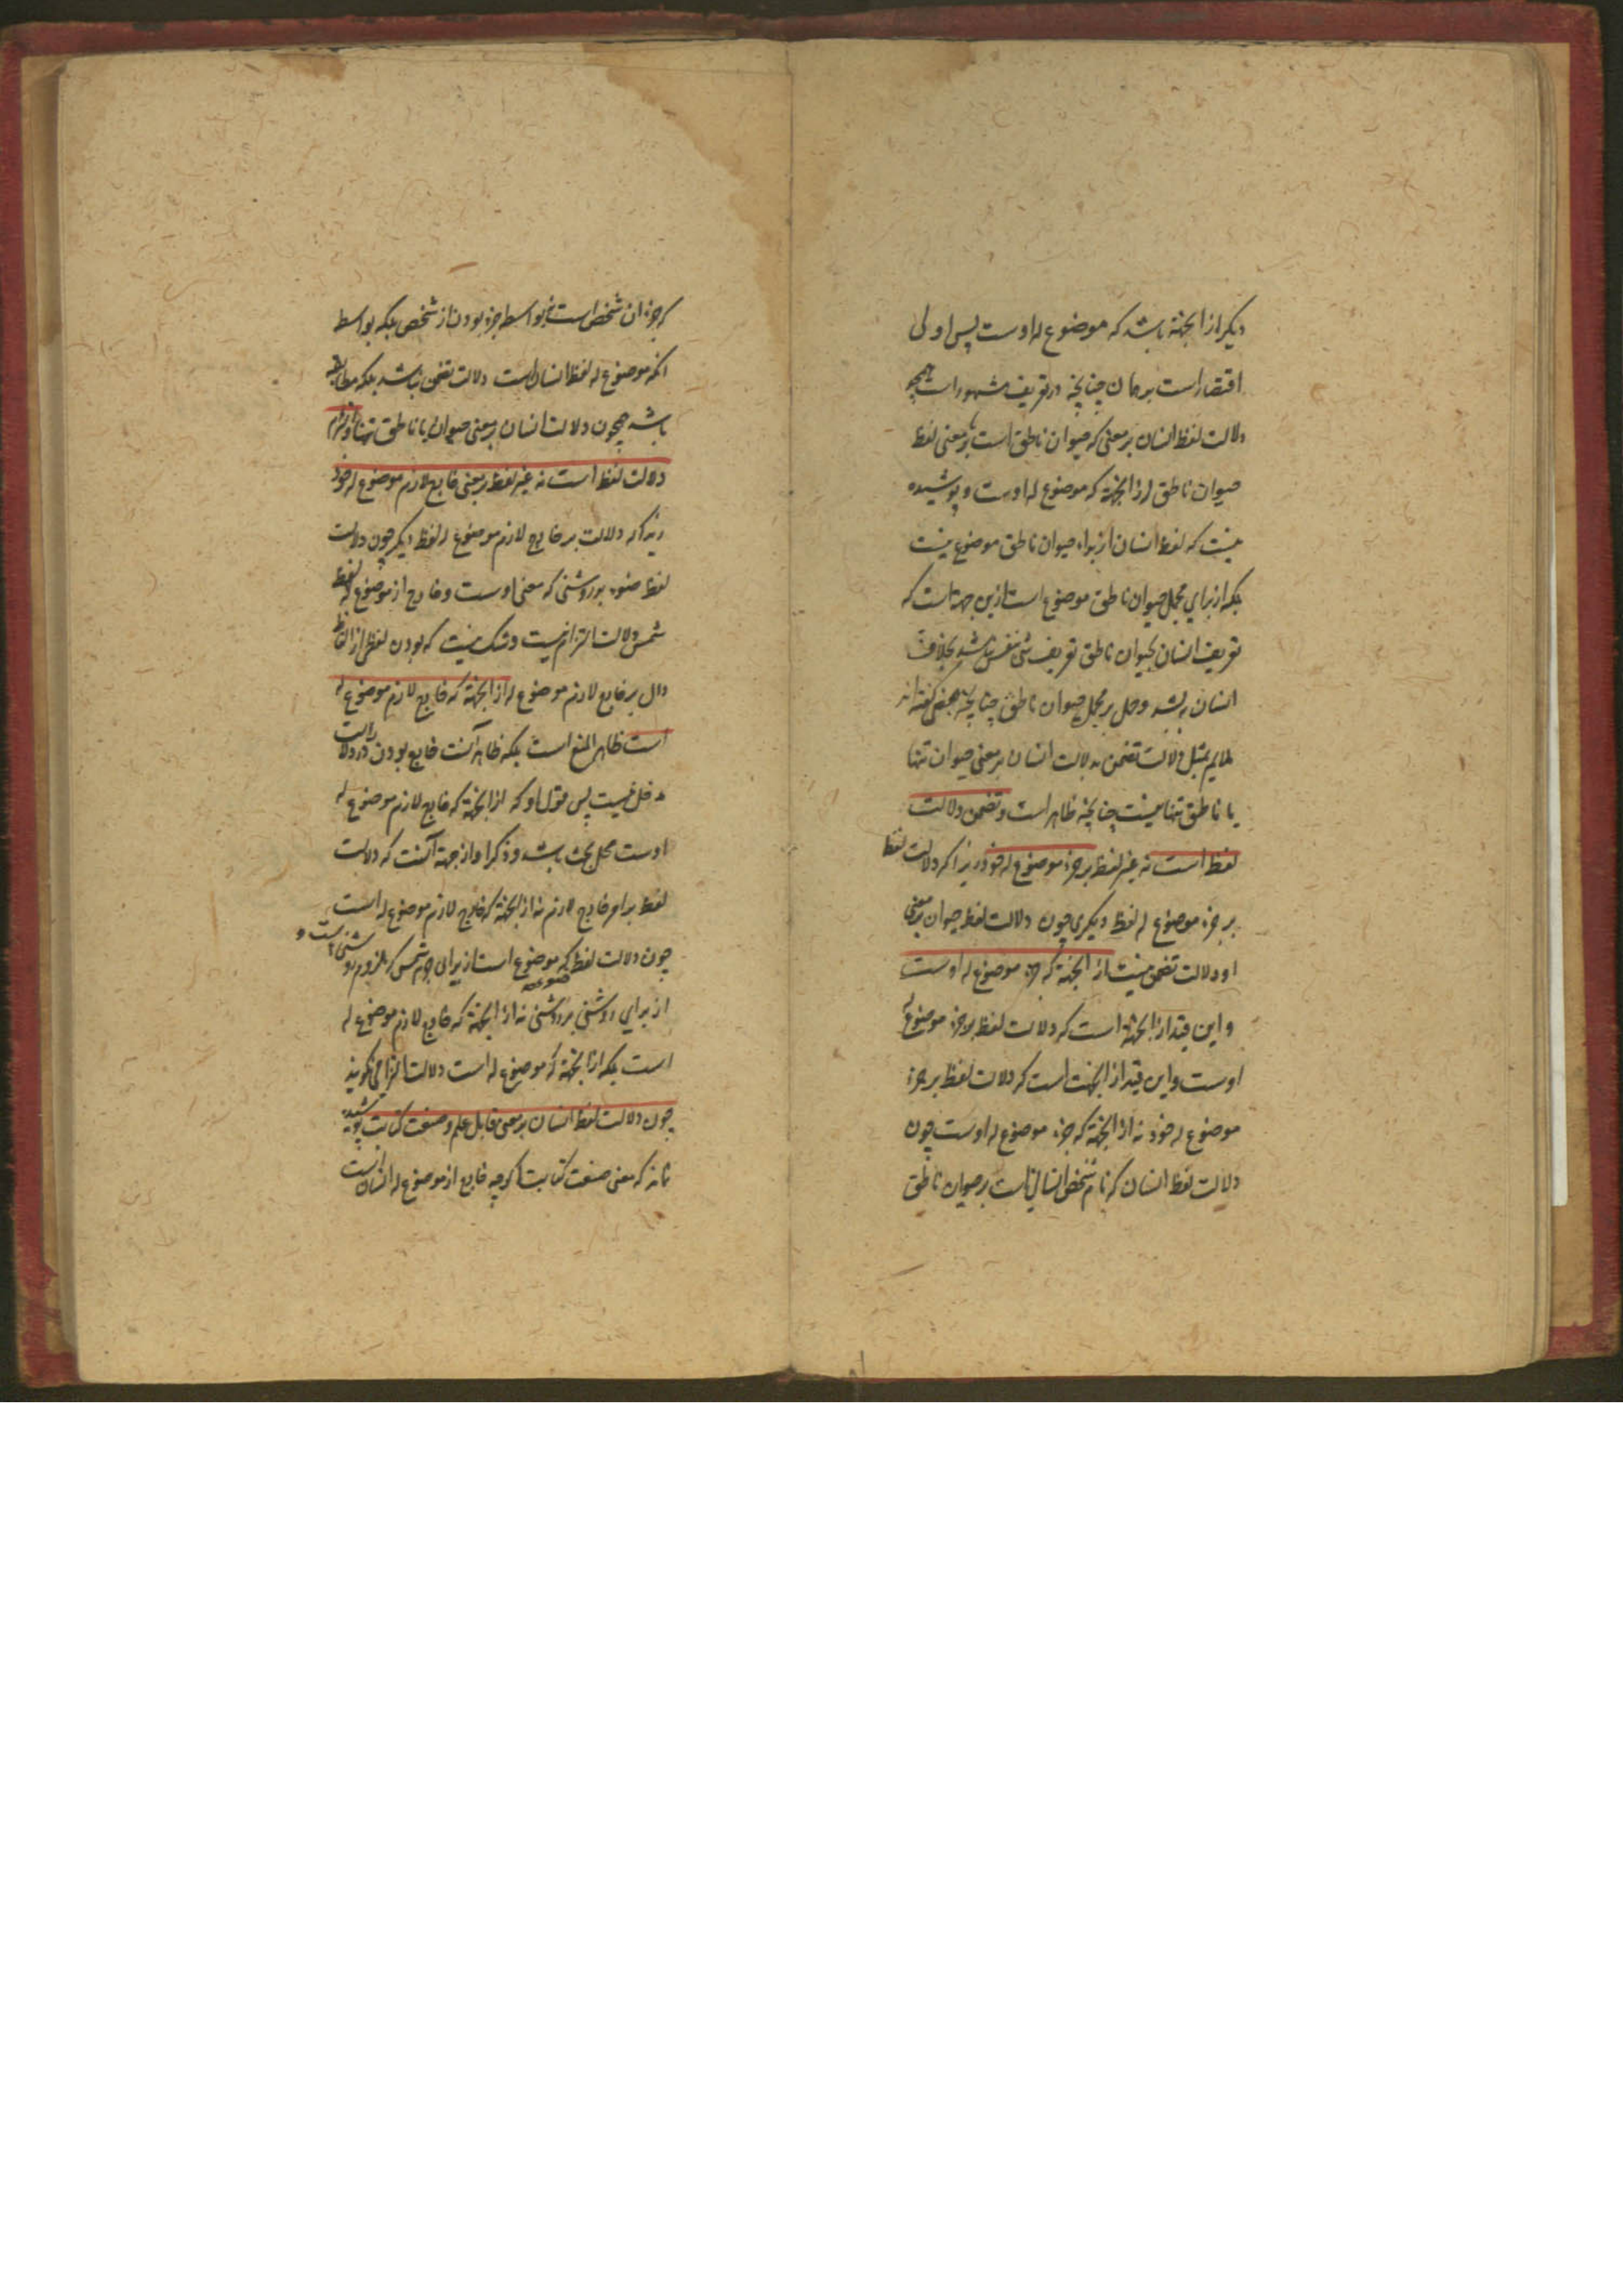 دیگر از انجهة باشد که موضوع له اوست پس اولی
اقتصار است بر همان چنانچه در تعریف مشهور است همچو
دلالت لفظ انسان بر معنی که حیوان ناطق است یا بر معنی لفظ
حیوان ناطق از انجهة که موضوع له اوست و پوشیده
نیست که لفظ انسان از براء حیوان ناطق موضوع نیست
بلکه از برای مجمل حیوان ناطق موضوع است ازین جهت است که
تعریف انسان بحیوان ناطق تعریف شی بنفس نباشد بخلاف
انسان بشد و حمل بر مجمل حیوان ناطق چنانچه بعضی گفته اند
ملایم تمثیل دلالت تضمن بدلالت انسان بر معنی حیوان تنها
یا ناطق تنها نیست چنانچه ظاهر است و تضمن دلالت
لفظ است نه غیر لفظ بر جزء موضوع له خود زیرا که دلالت لفظ
بر جزء موضوع له لفظ دیگری چون دلالت لفظ حیوان بر معنی
او دلالت تضمن نیست از انجهة که جزء موضوع له اوست
و این قید از انجهة است که دلالت لفظ بر جزء موضوع له
اوست و این قید از انجهت است که دلالت لفظ بر جزء
موضوع له خود نه از انجهة که جزء موضوع له اوست چون
دلالت لفظ انسان که نام شخص انسانی است بر حیوان ناطق
که جزء ان شخص است نه بواسطه جزء بودن از شخص بلکه بواسطه
انکه موضوع له لفظ انسان است دلالت تضمن نباشد بلکه مطابقه
باشد همچون دلالت انسان بر معنی حیوان یا ناطق تنها و التزام
دلالت لفظ است نه غیر لفظ بر معنی خارج لازم موضوع له خود
زیرا که دلالت بر خارج لازم موضوع له لفظ دیگر چون دلالت
لفظ ضوء بر روشنی که معنی اوست و خارج از موضوع له لفظ
شمس دلالت التزام نیست و شک نیست که بودن لفظی از الفاظ
دال بر خارج لازم موضوع له از انجهة که خارج لازم موضوع له
است ظاهر المنع است بلکه ظاهر آنست خارج بودن را در دلالت
دخل نیست پس قول او که از انجهة که خارج لازم موضوع له
اوست محل بحث باشد و ذکر او از جهة آنست که دلالت
لفظ بر امر خارج لازم نه از انجهة که خارج لازم موضوع له است
چون دلالت لفظ که موضوع است از برای جرم شمس که ملزوم روشنی است و
از برای روشنی بر روشنی نه از انجهة که خارج لازم موضوع له
است بلکه از انجهة که موضوع له است دلالت التزامی نگویند
چون دلالت لفظ انسان بر معنی قابل علم و صنعت کتابت پوشیده
نماند که معنی صنعت کتابت اگرچه خارج از موضوع له انسان است